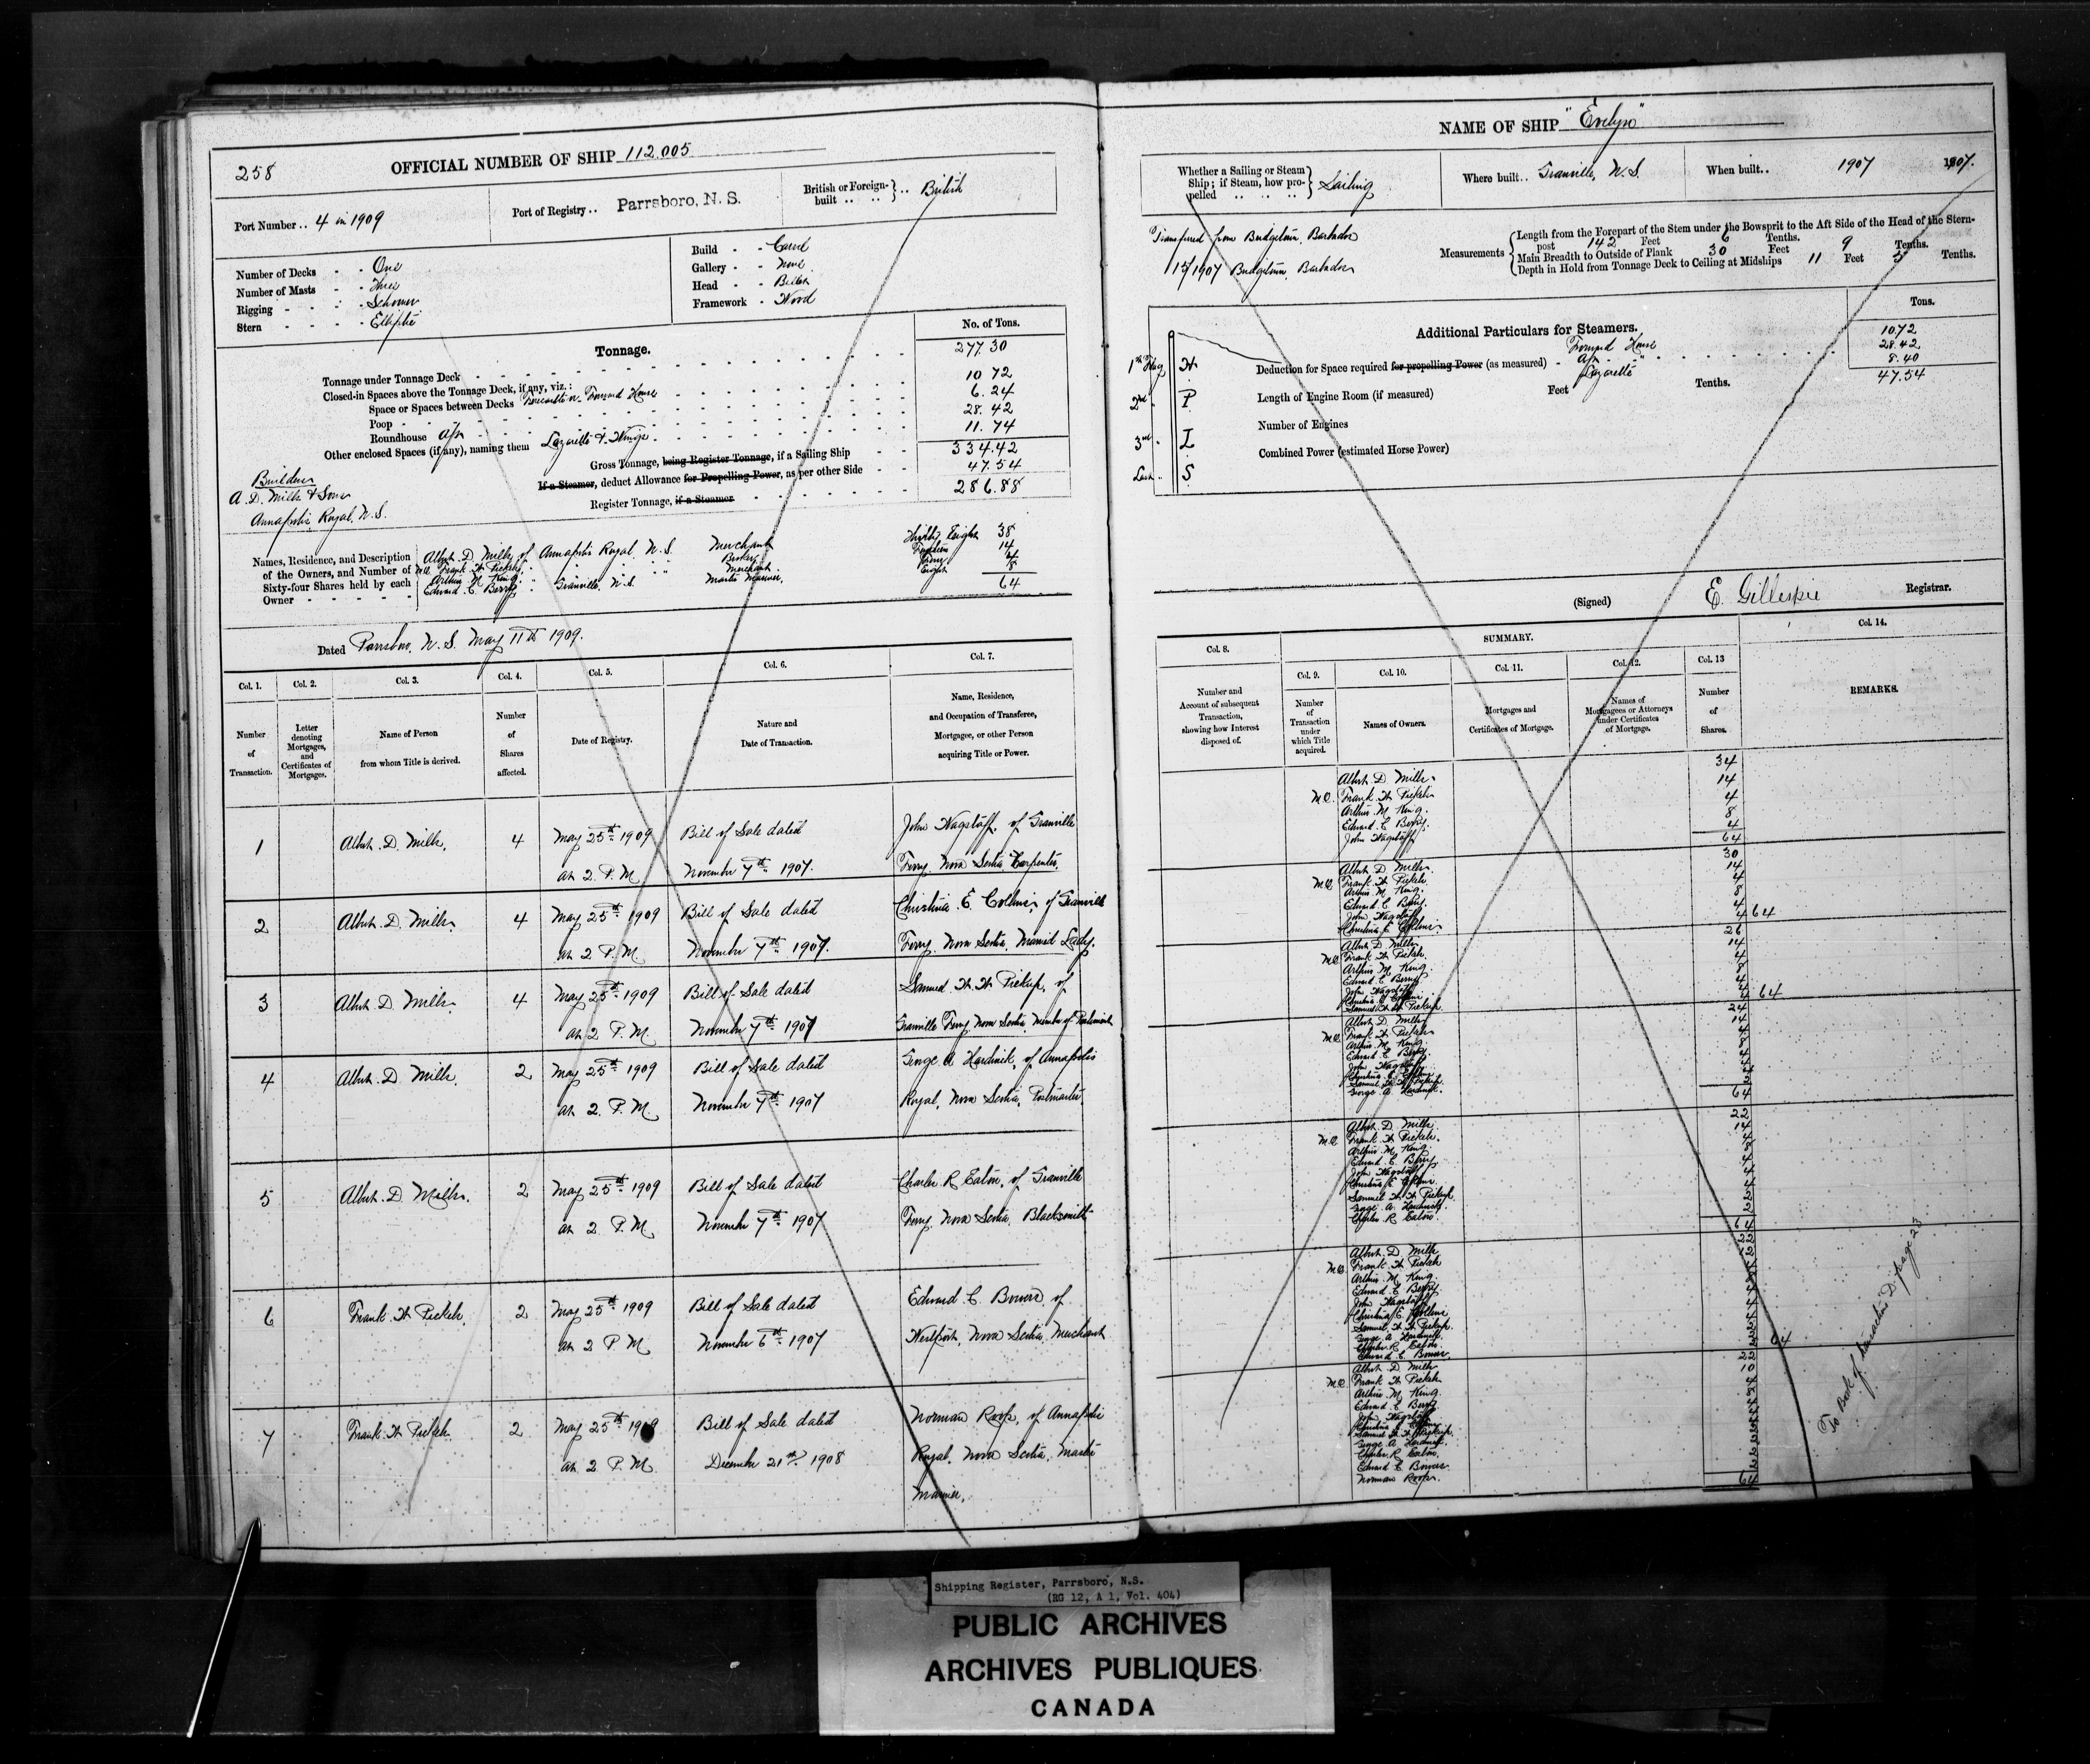 258
OFFICIAL NUMBER OF SHIP 112.005
Port Number .. 4 in 1909
Port of Registry .. Parrsboro, N. S.
British or Foreign-built .. .. British
Number of Decks - - One
Number of Masts - Three
Rigging - - - Schooner
Stern - - - - Elliptic
Build - - Carvel
Gallery - - None
Head - - Billet
Framework - Wood
Tonnage.
No. of Tons.
Tonnage under Tonnage Deck 277.30
Closed-in Spaces above the Tonnage Deck, if any, viz.:
Space or Spaces between Decks Forward House 10 72
Poop 6. 24
Roundhouse Aft 28. 42
Other enclosed Spaces (if any), naming them Lazarette & Winge 11. 74
Gross Tonnage, being Register Tonnage, if a Sailing Ship 334.42
If a Steamer, deduct Allowance for Propelling Power, as per other Side 47.54
Register Tonnage, if a Steamer 286.88
Builders
A. D. Mills & Sons
Annapolis Royal, N. S.
Names, Residence, and Description of the Owners, and Number of Sixty-four Shares held by each Owner
Albert D Mills of Annapolis Royal, N. S. Merchant Thirty Eight 38
M.O. Frank H Pickels " " " Broker Fourteen 14
Arthur M King " " " Merchant Four 4
Edward C. Berry " Granville N.S. Master Mariner. Eight 8
64
Dated Parrsboro, N. S. May 11th 1909.
Col. 1. Col. 2. Col. 3. Col. 4. Col. 5. Col. 6. Col. 7.
Number of Transaction.
Letter denoting Mortgages, and Certificates of Mortgages.
Name of Person from whom Title is derived.
Number of Shares affected.
Date of Registry.
Nature and Date of Transaction.
Name, Residence, and Occupation of Transferee, Mortgagee, or other Person acquiring Title or Power.
1 Albert D. Mills, 4 May 25th 1909 Bill of Sale dated John Wagstaff, of Granville
at 2. P. M November 7th 1907. Ferry, Nova Scotia Carpenter.
2 Albert D. Mills. 4 May 25th 1909 Bill of Sale dated Christina E. Collins, of Granville
at 2 P. M. November 7th 1907. Ferry, Nova Scotia, Married Lady.
3 Albert D Mills. 4 May 25th 1909 Bill of Sale dated Samuel W. W. Pickup, of
at 2 P. M November 7th 1907 Granville Ferry Nova Scotia Member of Parliament
4 Albert D Mills. 2 May 25th 1909 Bill of Sale dated George A Hardwick, of Annapolis
at 2. P. M November 7th 1907 Royal, Nova Scotia, Postmaster
5 Albert D. Mills. 2 May 25th 1909 Bill of Sale dated Charles R Eaton, of Granville
at 2 P. M November 7th 1907 Ferry, Nova Scotia, Blacksmith
6 Frank H Pickels, 2 May 25th 1909 Bill of Sale dated Edward C. Bowers, of
at 2 P M November 6th 1907 Westport, Nova Scotia, Merchant
7 Frank H Pickels 2 May 25th 1909 Bill of Sale dated Norman Roop, of Annapolis
at 2 P. M December 21st 1908 Royal, Nova Scotia, Master
Mariner,
NAME OF SHIP "Evelyn"
Whether a Sailing or Steam Ship; if Steam, how propelled .. .. .. Sailing
Where built .. Granville, N. S.
When built .. 1907 1907.
Transferred from Bridgetown, Barbados
15/1907 Bridgetown Barbados
Measurements
Length from the Forepart of the Stem under the Bowsprit to the Aft Side of the Head of the Stern-
post 142 Feet 6 Tenths.
Main Breadth to Outside of Plank 30 Feet 9 Tenths.
Depth in Hold from Tonnage Deck to Ceiling at Midships 11 Feet 5 Tenths.
Additional Particulars for Steamers.
Tons.
1st Flag H
2nd " P
3rd " L
Last " S
Deduction for Space required for propelling Power (as measured) -
Forward House 10.72
Aft " 28.42
Lazarette 8.40
47.54
Length of Engine Room (if measured) Feet Tenths.
Number of Engines
Combined Power (estimated Horse Power)
(Signed) E. Gillespie Registrar.
Col. 8. SUMMARY. Col. 14.
Col. 9. Col. 10. Col. 11. Col. 12. Col. 13
Number and Account of subsequent Transaction, showing how Interest disposed of.
Number of Transaction under which Title acquired.
Names of Owners.
Mortgages and Certificates of Mortgage.
Names of Mortgagees or Attorneys under Certificates of Mortgage.
Number of Shares.
REMARKS.
Albert D Mills 34
M.O. Frank H Pickels 14
Arthur M King. 4
Edward C Berry. 8
John Wagstaff 4
64
Albert D Mills 30
M.O. Frank H Pickels 14
Arthur M King. 4
Edward C Berry 8
John Wagstaff 4
Christina E Collins 4 64
Albert D Mills 26
M.O. Frank H Pickels 14
Arthur M King. 4
Edward C Berry 8
John Wagstaff 4
Christina E Collins 4
Samuel W W Pickup 4 64
Albert D Mills 24
M.O. Frank H Pickels 14
Arthur M King. 4
Edward C Berry 8
John Wagstaff 4
Christina E Collins 4
Samuel W W Pickup 4
George A Hardwick 2
64
Albert D Mills 22
M.O. Frank H Pickels. 14
Arthur M King 4
Edward C Berry 8
John Wagstaff 4
Christina E Collins 4
Samuel W W Pickup 4
George A. Hardwick 2
Charles R Eaton 2
64
Albert D Mills 22
M.O. Frank H Pickels 12
Arthur M King. 4
Edward C Berry 8
John Wagstaff 4
Christina E Collins 4
Samuel W W Pickup 4
George A Hardwick 2
Charles R Eaton 2
Edward C Bowers 2 64
Albert D Mills 22
M.O. Frank H Pickels 10
Arthur M King. 4
Edward C Berry 8
John Wagstaff 4
Christina E Collins 4
Samuel W W Pickup 4
George A Hardwick 2
Charles R Eaton 2
Edward C Bowers 2
Norman Roop. 2
64
To Book of Page 23
Shipping Register, Parrsboro, N.S.
(RG 12, A 1, Vol. 404)
PUBLIC ARCHIVES
ARCHIVES PUBLIQUES
CANADA